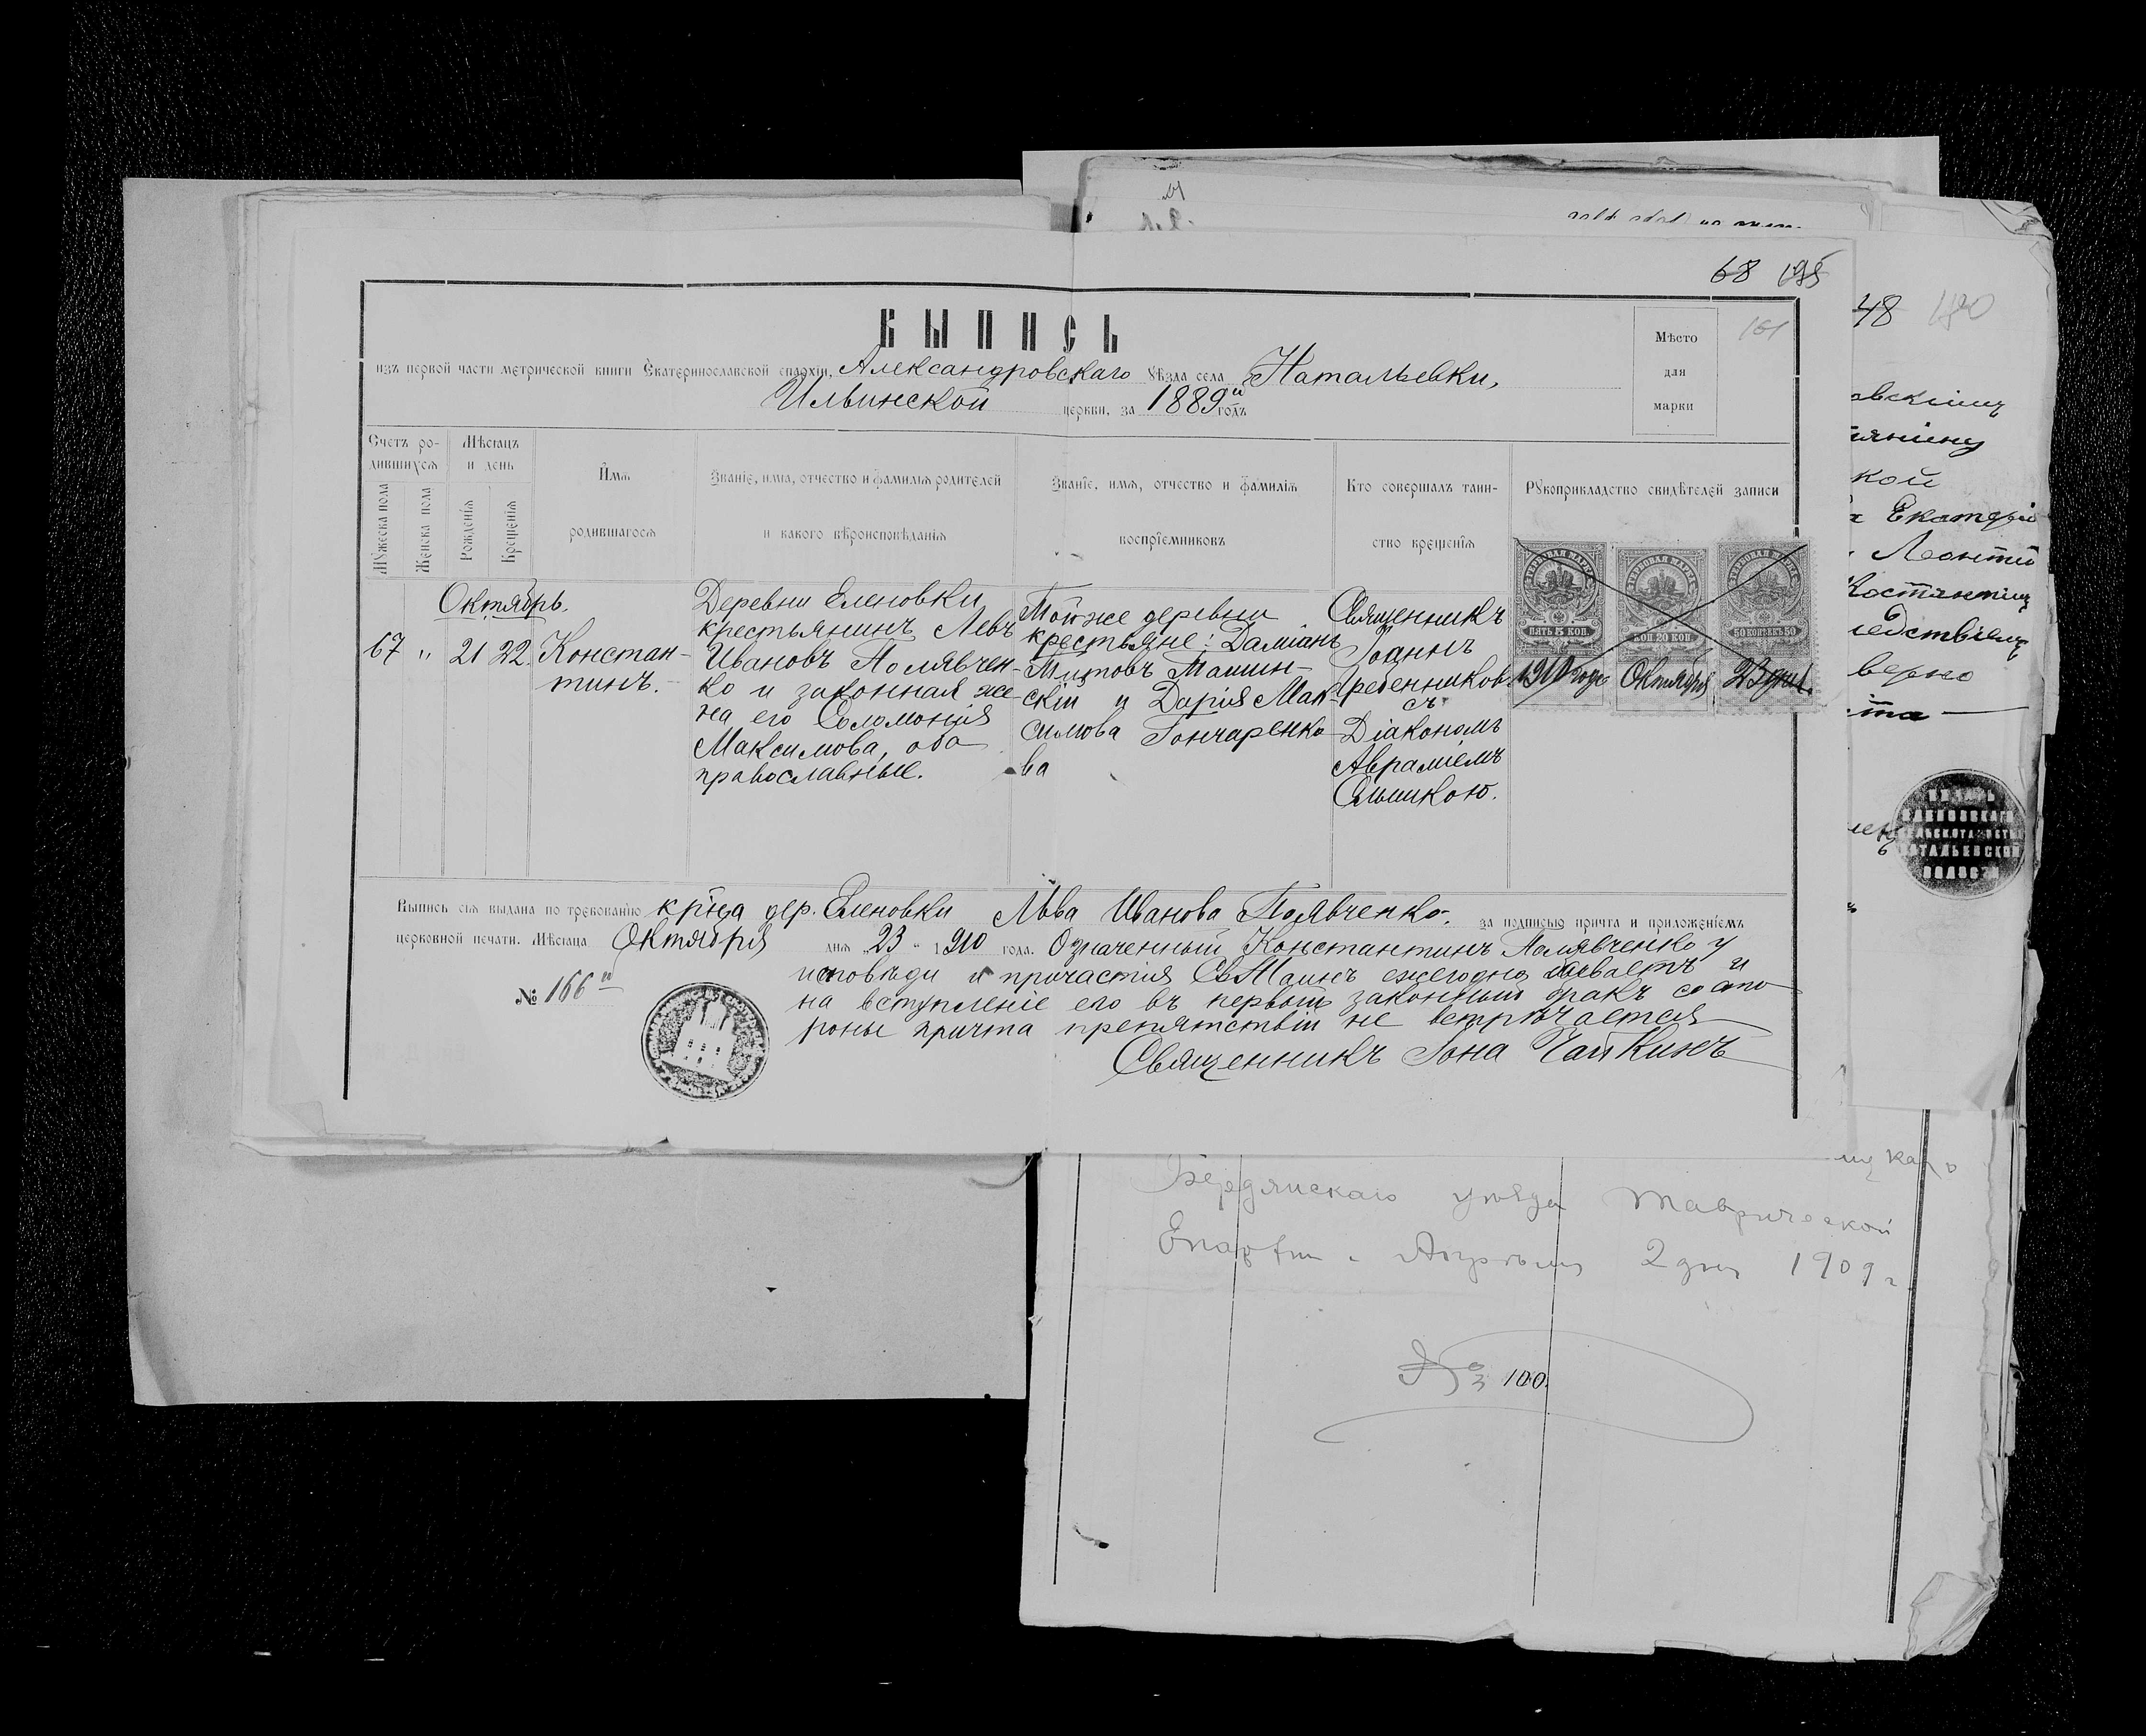 68 195
48 180
ВЫПИСЬ
161
Мѣсто
для
марки
изъ первой части метрической книги Екатеринославской епархіи, Александровскаго уѣзда села Натальевки,
Ильинской церкви, за 1889й годъ
Счетъ родившихся
Мужеска пола
Женска пола
Мѣсяцъ и день
Рожденія
Крещенія
Имя родившагося
Званіе, имя, отчество и фамилія родителей
и какого вѣроисповѣданія
Званіе, имя, отчество и фамилія
воспріемниковъ
Кто совершалъ таин-
ство крещенія
Рукоприкладство свидѣтелей записи
Октябрь.
67 " 21 22
Констан-
тинъ.
Деревни Еленовки
крестьянинъ Левъ
Ивановъ Полявчен-
ко и законная же-
на его Соломонія
Максимова, оба
православные.
Той же деревни
крестьяне: Даміанъ
Титовъ Машин-
скій и Дарія Мак-
симова Гончаренко-
ва
Священникъ
Іоаннъ
Гребенниковъ
съ
Діакономъ
Авраміемъ
ГЕРБОВАЯ МАРКА
ПЯТЬ 5 КОП.
ГЕРБОВАЯ МАРКА
КОП. 20 КОП.
ГЕРБОВАЯ МАРКА
50 КОПѢЕКЪ 50
1910 года Октября 23 дня.
Выпись сія выдана по требованію кр-на дер. Еленовки Льва Иванова Полявченко, за подписью причта и приложеніемъ
церковной печати. Мѣсяца Октября дня 23 1910 года. Означенный Константинъ Полявченко у
исповѣди и причастія Св. Таинъ ежегодно бываетъ и
на вступленіе его въ первый законный бракъ со сто-
роны причта препятствій не встрѣчается
№ 166й
Священникъ Іона Чайкинъ
кой
Екатери
Леонтій
верно
НАТАЛЬЕВСКОЙ
ВОЛОСТИ
Бердянскаго уѣзда Таврической
Епархіи 2 дня 1909 г
№ 100.